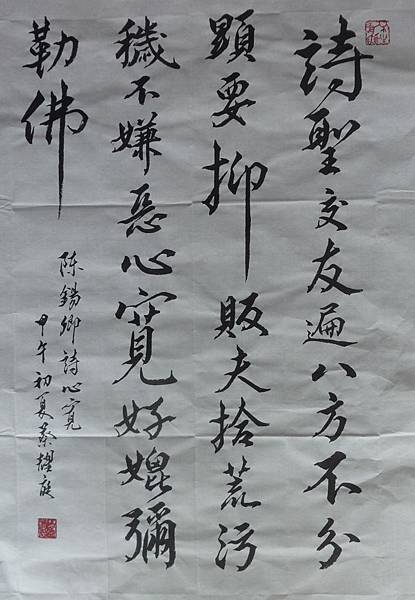 詩聖交友遍八方不分
顯要抑販夫拾荒污
穢不嫌惡心寬好媲彌
勒佛
陳錫卿詩心寬
甲午初夏蔡耀庭